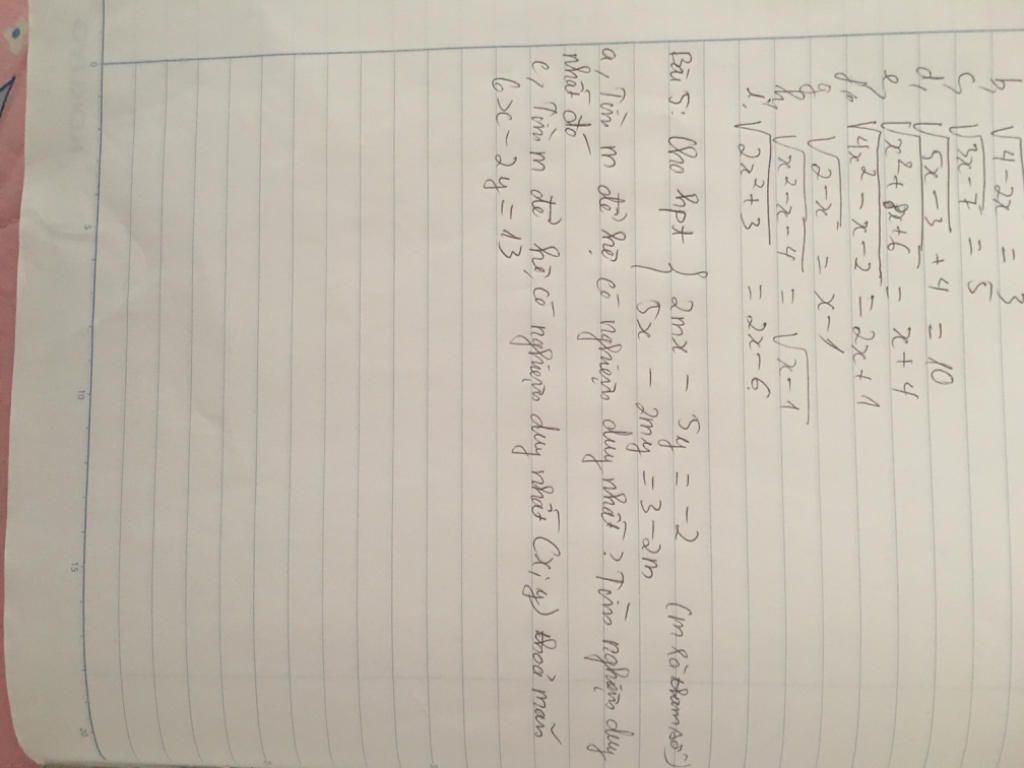 b, √4-2x = 3
c, √3x-7 = 5
d, √5x-3 + 4 = 10
e, √x²+8x+6 = x+4
f, √4x²-x-2 = 2x+1
g, √2-x = x-1
h, √x²-x-4 = √x-1
i, √2x²+3 = 2x-6
Bài 5: Cho hpt { 2mx - 5y = -2 (m là tham số)
5x - 2my = 3-2m
a, Tìm m để hệ có nghiệm duy nhất? Tìm nghiệm duy
nhất đó
c, Tìm m để hệ có nghiệm duy nhất (x;y) thoả mãn
6x - 2y = 13
0
5
10
15
20